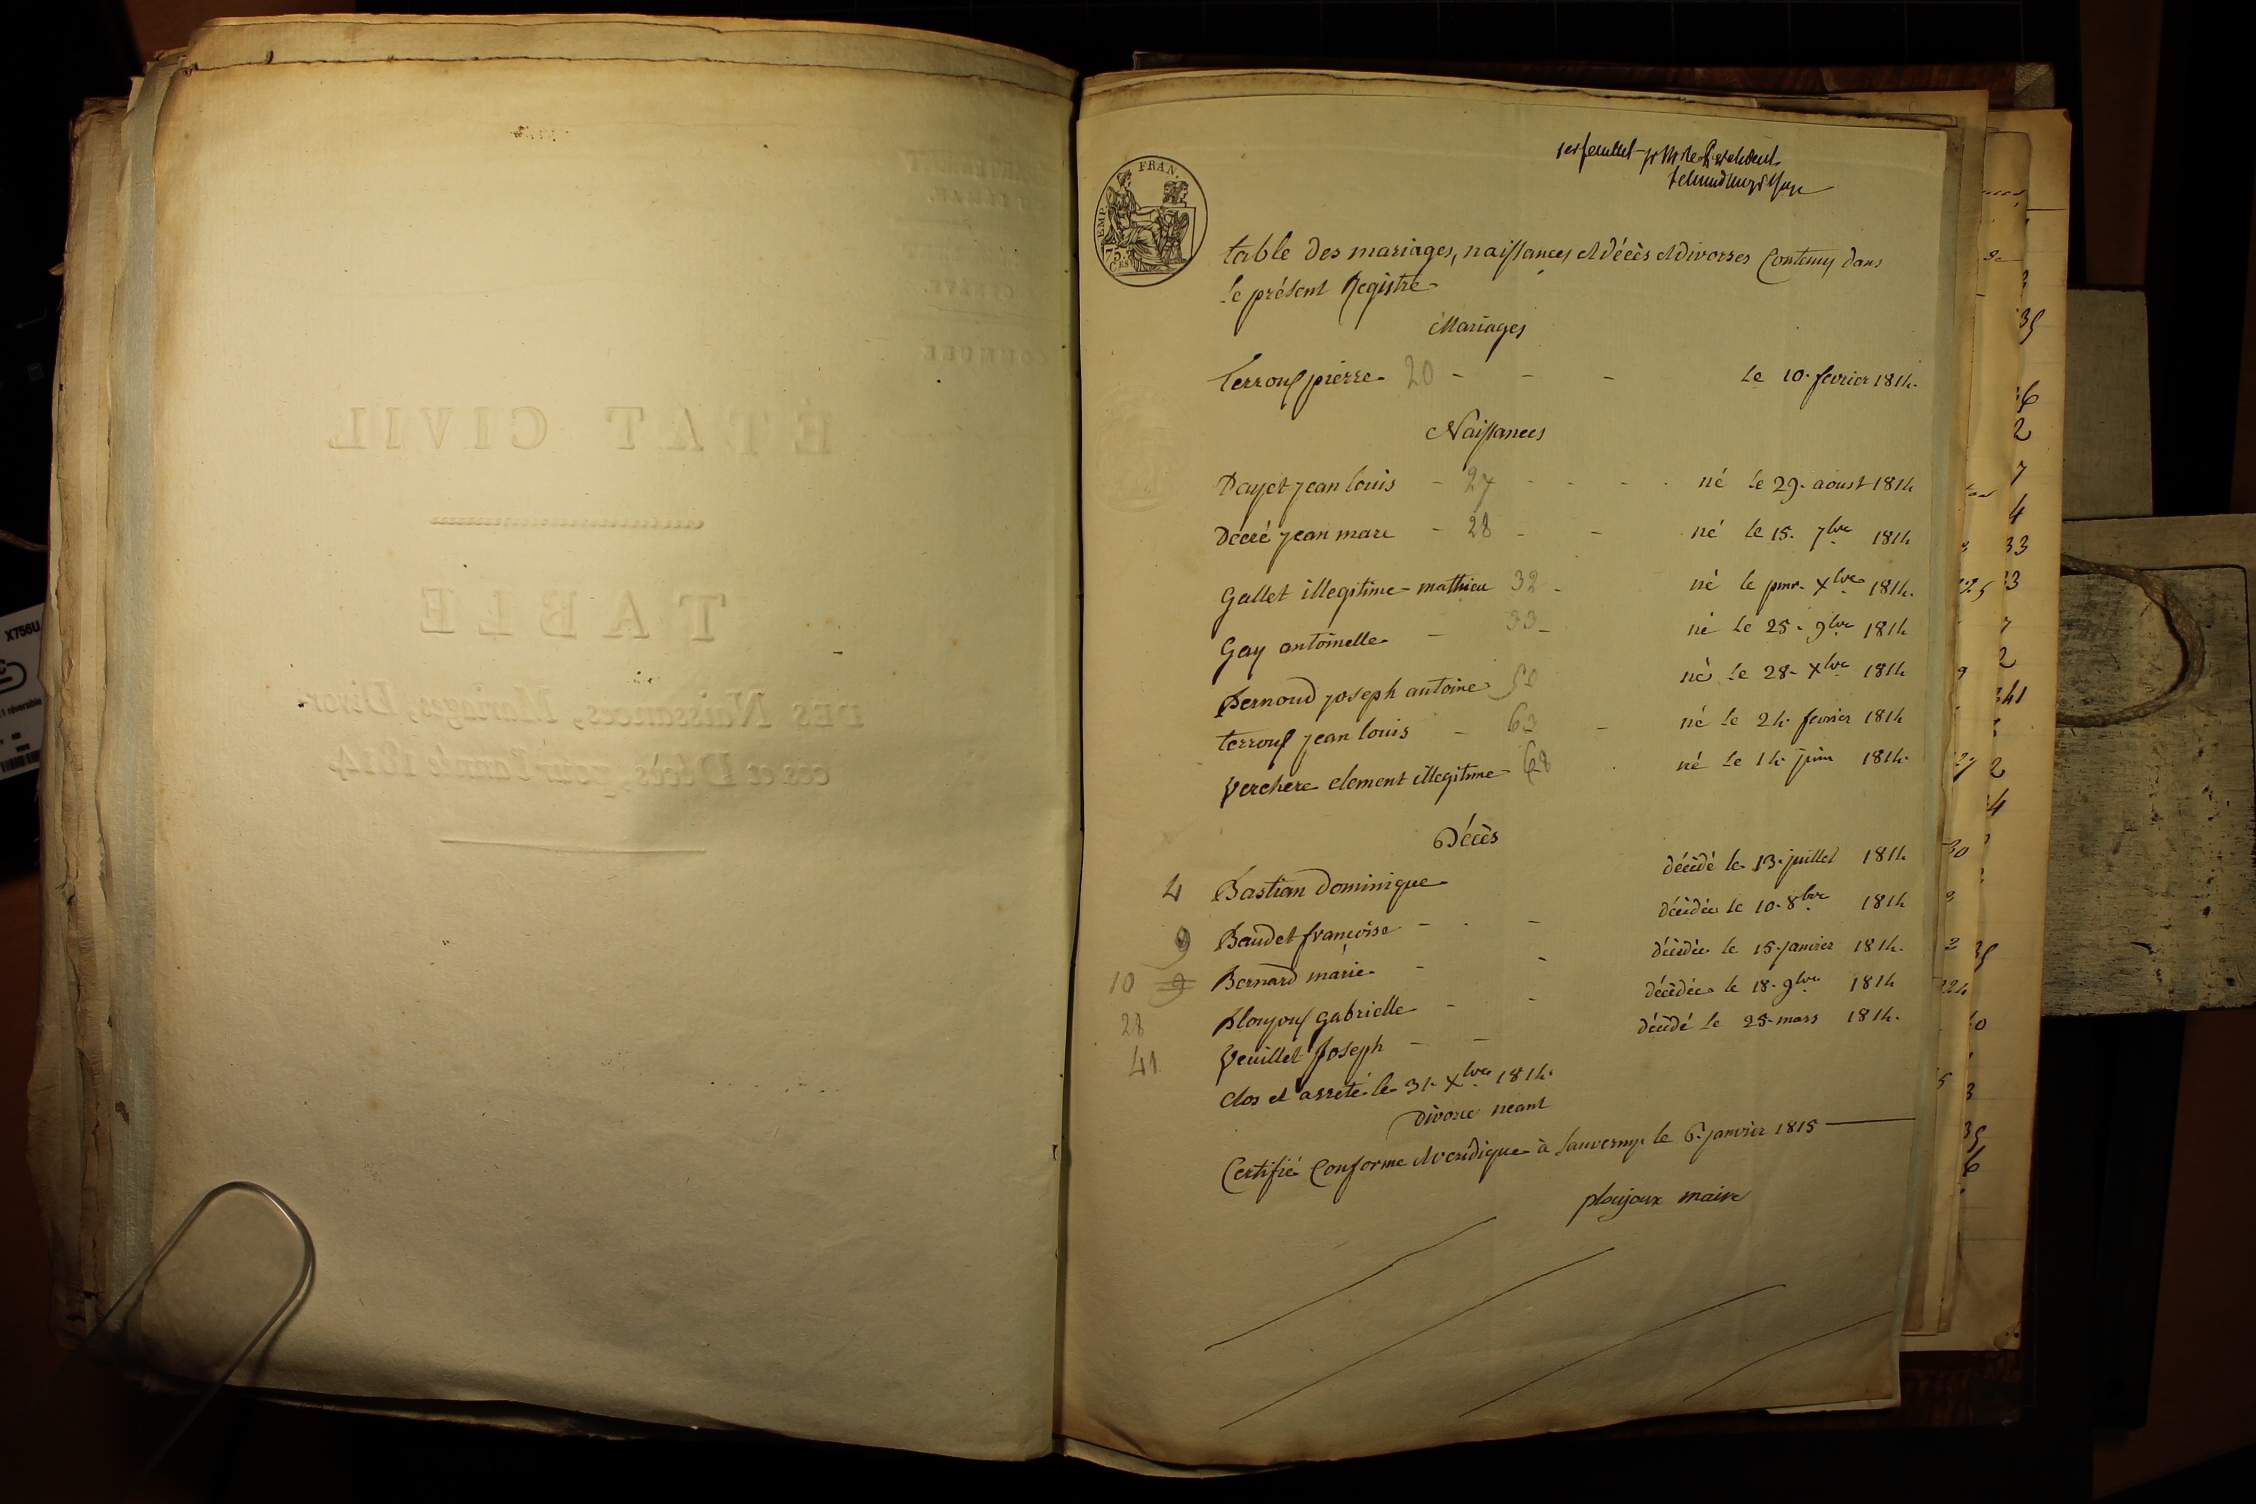 ÉTAT CIVIL
TABLE
DES Naissances, Mariages, Divor-
ces et Décès, pour l'année 1814.
EMP. FRAN.
75.
CES
table des mariages, naissances et décès et divorses Contenus dans
le présent Registre
Mariages
terroux pierre 20 - - - le 10. fevrier 1814.
Naissances
Dayet jean louis - 27 - - - né le 29. aoust 1814
Décré jean marc - 28 - - né le 15. 7bre 1814
Gallet illegitime - mathieu 32 - né le pmr. Xbre 1814.
Gay antoinelle - 33 - né le 25. 9bre 1814
Pernoud joseph antoine 50 né le 28. Xbre 1814
terroux jean louis - 63 - né le 24. fevrier 1814
Verchere clement illegitime 68 né le 14. juin 1814.
Décès
4 Bastian Dominique décédé le 13. juillet 1814.
9 Baudet françoise - - - décédée le 10. 8bre 1814
10 9 Bernard marie - - décédée le 15. janvier 1814.
28 Ploujoux gabrielle - - décédée le 18. 9bre 1814
41 Veuillet Joseph - - décédé le 25. mars 1814.
Clos et arrete le 31. Xbre 1814.
divorce neant
Certifié Conforme et veridique à Sauverny le 6. janvier 1815
ploujoux maire